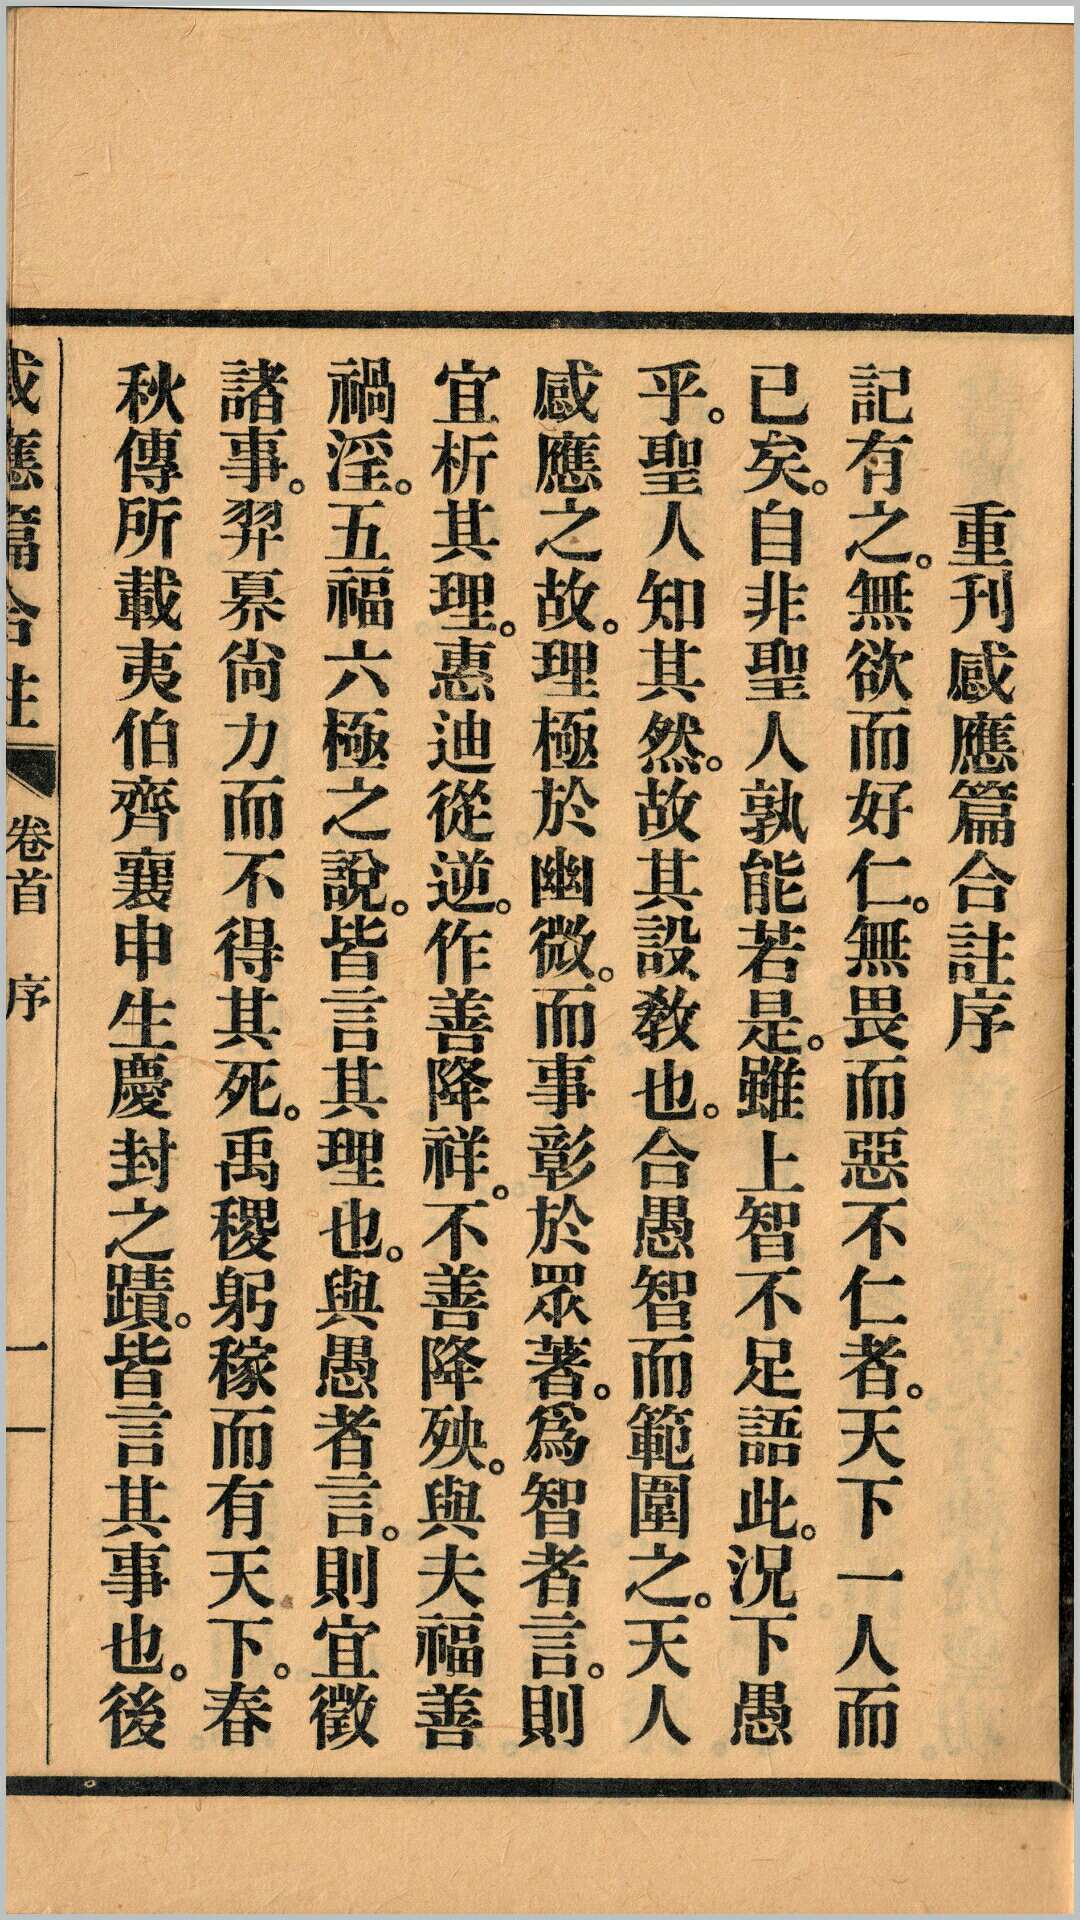 重刊感應篇合註序
記有之。無欲而好仁。無畏而惡不仁者。天下一人而
已矣。自非聖人孰能若是。雖上智不足語此。況下愚
乎。聖人知其然。故其設教也。合愚智而範圍之。天人
感應之故。理極於幽微。而事彰於眾著。爲智者言。則
宜析其理。惠迪從逆。作善降祥。不善降殃。與夫福善
禍淫。五福六極之說。皆言其理也。與愚者言。則宜徵
諸事。羿奡尚力而不得其死。禹稷躬稼而有天下。春
秋傳所載夷伯齊襄申生慶封之蹟。皆言其事也。後
感應篇合註 卷首 序 一 一